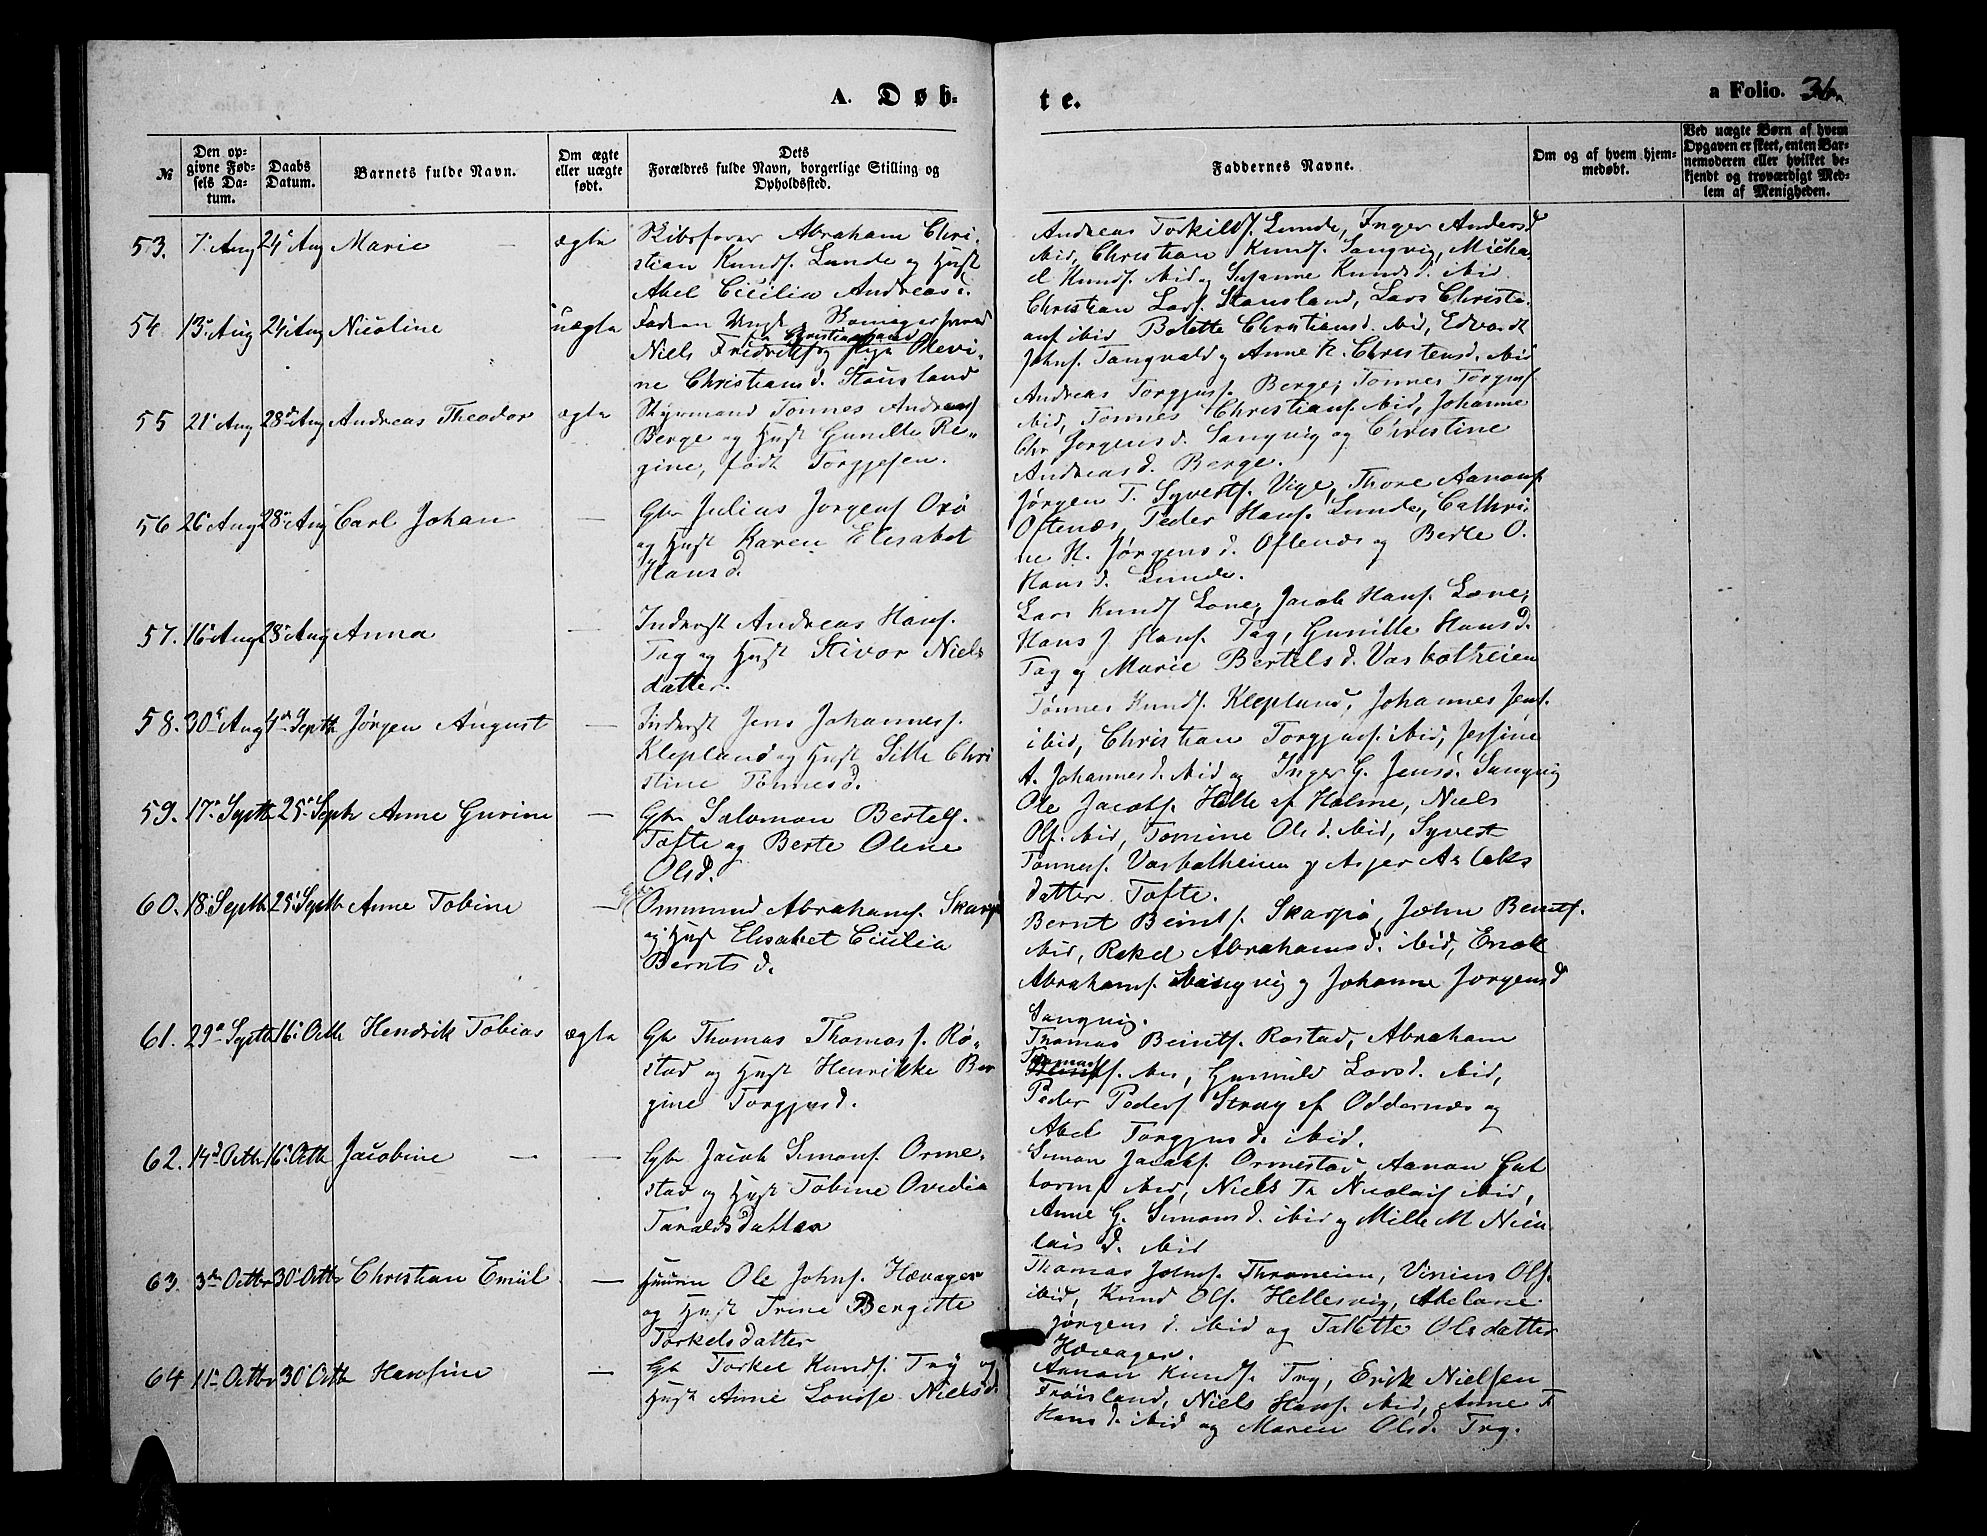 A. Døb-
te.
a Folio. 36.
№
Den op-
givne Fød-
sels Da-
tum.
Daabs
Datum.
Barnets fulde Navn.
Om ægte
eller uægte
født.
Dets
Forældres fulde Navn, borgerlige Stilling og
Opholdssted.
Faddernes Navne.
Om og af hvem hjem-
medøbt.
Ved uægte Børn af hvem
Opgaven er skeet, enten Bar-
nemoderen eller hvilket be-
kjendt og troværdigt Med-
lem af Menigheden.
53. 7 Aug 24 Aug Marie — ægte
Skibsfører Abraham Chri-
stian Knuds. Lunde og Hust
Abel Cicilia Andreasd.
Andreas Torkilds. Lunde, Inger Andersd
ibid, Christian Knuds. Sangvig, Micha-
el Knuds. ibid og Susanne Knudsd. ibid
54. 13 Aug 24 Aug Nicoline uægte
Ungk.
fra Christianssand
Niels Fredriks og Pige Olevi-
ne Christiansd. Stausland
Christian Lars. Stausland, Lars Christi-
ans ibid Bolette Christiansd. ibid, Edvardt
Johns. Tangvald og Anne K. Christensd. ibid
55 21 Aug 28 Aug Andreas Theodor ægte
Styrmand Tønnes Andreas
Berge og Hust Gunilde Re-
gine, født Torgjesen.
Andreas Torgjus. Berge, Tønnes Torgjus.
ibid, Tønnes Christians. ibid, Johanne
Chr. Jørgensd. Sangvig og Christine
Andreasd. Berge.
56 26 Aug 28 Aug Carl Johan —
Gbr Julius Jørgens Oxø
og Hust Karen Elisabet
Hansd.
Jørgen T. Syverts. Vige, Thore Aanons.
Oftenæs, Peder Hans. Lunde, Cathri-
ne H. Jørgensd. Oftenæs og Berte O.
Hansd. Lunde.
57. 16 Aug 28 Aug Anna —
Inderst Andreas Hans.
Tag og Hust Sivor Niels
datter.
Lars Knuds Lone, Jacob Hans. Lone,
Hans J Hans. Tag, Gunille Hansd.
Tag og Marie Bertelsd. Vasbotheien
58. 30 Aug 4 Septb Jørgen August —
Inderst Jens Johannes.
Klepland og Hust Sille Chri
stine Tønnesd.
Tønnes Knuds. Klepland, Johannes Jens.
ibid, Christian Torgjus. ibid, Jessine
A. Johannesd. ibid og Inger G. Jensd. Sangvig
59. 17 Septb 25 Septb Anne Gurine —
Gbr Salomon Bertels.
Tofte og Berte Olene
Olsd.
Ole Jacobs. Helle af Holme, Niels
Ols. ibid, Tomine Olsd. ibid, Syvert
Tønnes. Vasbotheien og Asper Aslaks
datter Tofte.
60. 18 Septb 25 Septb Anne Tobine —
Gbr Ommund Abrahams. Skarpø
og Hust Elisabet Cicilia
Berntsd.
Bernt Beints. Skarpø, John Bernts.
ibid, Rakel Abrahamsd. ibid, Enok
Abrahams. Sangvig og Johanne Jørgensd
Sangvig.
61. 29 Septb 16 Octb Hendrik Tobias ægte
Gbr Thomas Thomas. Rø-
stad og Hust Henrikke Ber
gine Torgjusd.
Thomas Beints. Rostad, Abraham
Thomas. ibid, Gunnild Larsd. ibid,
Peder Peders. Stray af Oddernæs og
Abel Torgjusd. ibid.
62. 14 Octb 16 Octb Jacobine — —
Gbr Jacob Simons. Orme-
stad og Hust Tobine Ovedia
Taraldsdatter
Simon Jacobs. Ormestad, Aanon Gut
torms ibid, Niels Th Nicolais ibid,
Anne G. Simonsd. ibid og Mille M Nico
laisd. ibid
63. 3 Octbr 30 Octbr Christian Emil —
Ole Johns. Høvager
og Hust Trine Bergitte
Torkelsdatter
Thomas Johns. Throneim, Vinius Ols.
ibid, Knud Ols. Hellesvig, Abelone
Jørgensd. ibid og Tallette Olsdatter
Høvager.
64 11 Octbr 30 Octb Hansine —
Gbr Torkel Knuds. Try og
Hust Anne Lovise Nielsd.
Aanon Knuds. Try, Erik Nielsen
Frøisland, Niels Hans. ibid, Anne T
Hansd. ibid og Maren Olsd. Try.